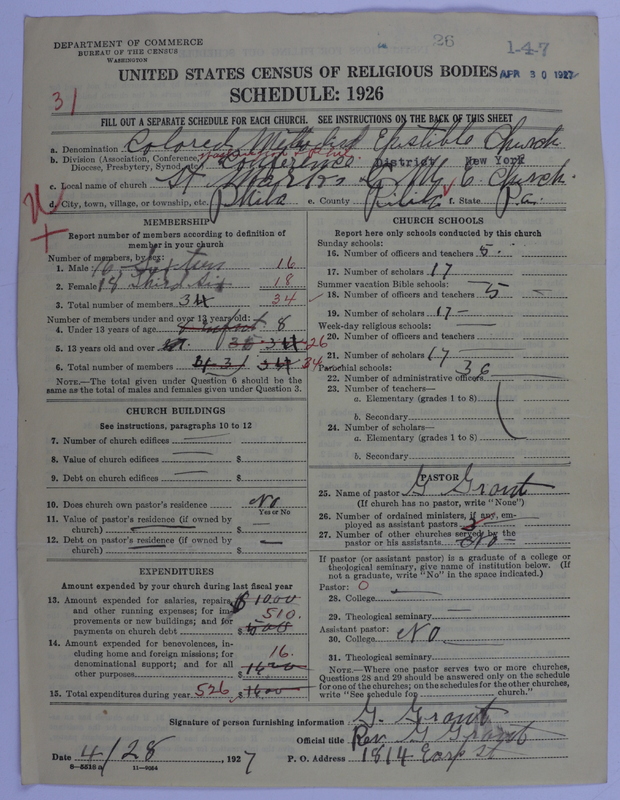 DEPARTMENT OF COMMERCE
BUREAU OF THE CENSUS
WASHINGTON
26
1-4-7
APR 30 1927
UNITED STATES CENSUS OF RELIGIOUS BODIES
SCHEDULE: 1926
31
FILL OUT A SEPARATE SCHEDULE FOR EACH CHURCH. SEE INSTRUCTIONS ON THE BACK OF THIS SHEET
a. Denomination Colored Methodist Church
b. Division (Association, Conference, Diocese, Presbytery, Synod, etc.) Conference District New York
c. Local name of church C. M. E. Church.
d. City, town, village, or township, etc. Phila e. County Phila f. State Pa.
MEMBERSHIP
Report number of members according to definition of
member in your church
Number of members, by sex:
1. Male 16 16
2. Female 18 18
3. Total number of members 34 34
Number of members under and over 13 years old:
4. Under 13 years of age 8
5. 13 years old and over 26
6. Total number of members 34 34
NOTE.—The total given under Question 6 should be the
same as the total of males and females given under Question 3.
CHURCH BUILDINGS
See instructions, paragraphs 10 to 12
7. Number of church edifices
8. Value of church edifices $
9. Debt on church edifices $
10. Does church own pastor's residence No
Yes or No
11. Value of pastor's residence (if owned by
church) $
12. Debt on pastor's residence (if owned by
church) $
EXPENDITURES
Amount expended by your church during last fiscal year
13. Amount expended for salaries, repairs, $1000
and other running expenses; for im- 510.
provements or new buildings; and for
payments on church debt $ 500
14. Amount expended for benevolences, in-
cluding home and foreign missions; for 16.
denominational support; and for all
other purposes $ 1600
15. Total expenditures during year 526 $ 1600
CHURCH SCHOOLS
Report here only schools conducted by this church
Sunday schools:
16. Number of officers and teachers 5.
17. Number of scholars 17
Summer vacation Bible schools:
18. Number of officers and teachers 5
19. Number of scholars 17
Week-day religious schools:
20. Number of officers and teachers
21. Number of scholars 17
Parochial schools: 36
22. Number of administrative officers
23. Number of teachers—
a. Elementary (grades 1 to 8)
b. Secondary
24. Number of scholars—
a. Elementary (grades 1 to 8)
b. Secondary
PASTOR
25. Name of pastor G Grant
(If church has no pastor, write "None")
26. Number of ordained ministers, if any, em-
ployed as assistant pastors
27. Number of other churches served by the
pastor or his assistants No
If pastor (or assistant pastor) is a graduate of a college or
theological seminary, give name of institution below. (If
not a graduate, write "No" in the space indicated.)
Pastor: 0
28. College
29. Theological seminary
Assistant pastor:
30. College No
31. Theological seminary
NOTE.—Where one pastor serves two or more churches,
Questions 28 and 29 should be answered only on the schedule
for one of the churches; on the schedules for the other churches,
write "See schedule for church."
Signature of person furnishing information G. Grant
Official title Rev G Grant
Date 4/28, 1927 P. O. Address 1814 Earp st
8—5518 a 11—9064